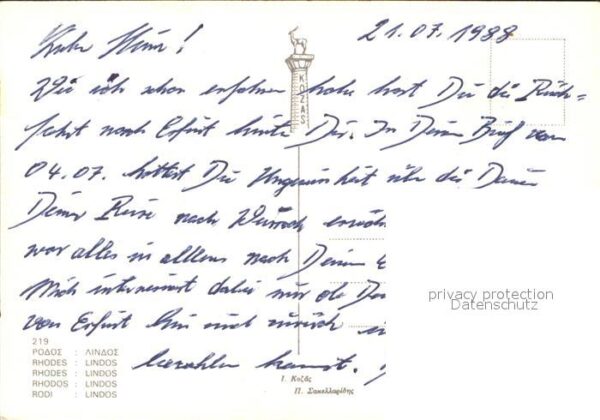 21.07.1988
!
Wie ich schon erfahren habe hast Du die Rück-
fahrt nach Erfurt hinter Dir. In Deinem Brief vom
04.07. hattest Du Ungewissheit über die Dauer
Deiner Reise nach Wunsch
war alles in allem nach Deinem
Mich interessiert dabei nur ob Du
von Erfurt hin und zurück
bezahlen kannst.
KOZAS
privacy protection
Datenschutz
219
ΡΟΔΟΣ : ΛΙΝΔΟΣ
RHODES : LINDOS
RHODES : LINDOS
RHODOS : LINDOS
RODI : LINDOS
Ι. Κοζάς
Π. Σακελλαρίδης